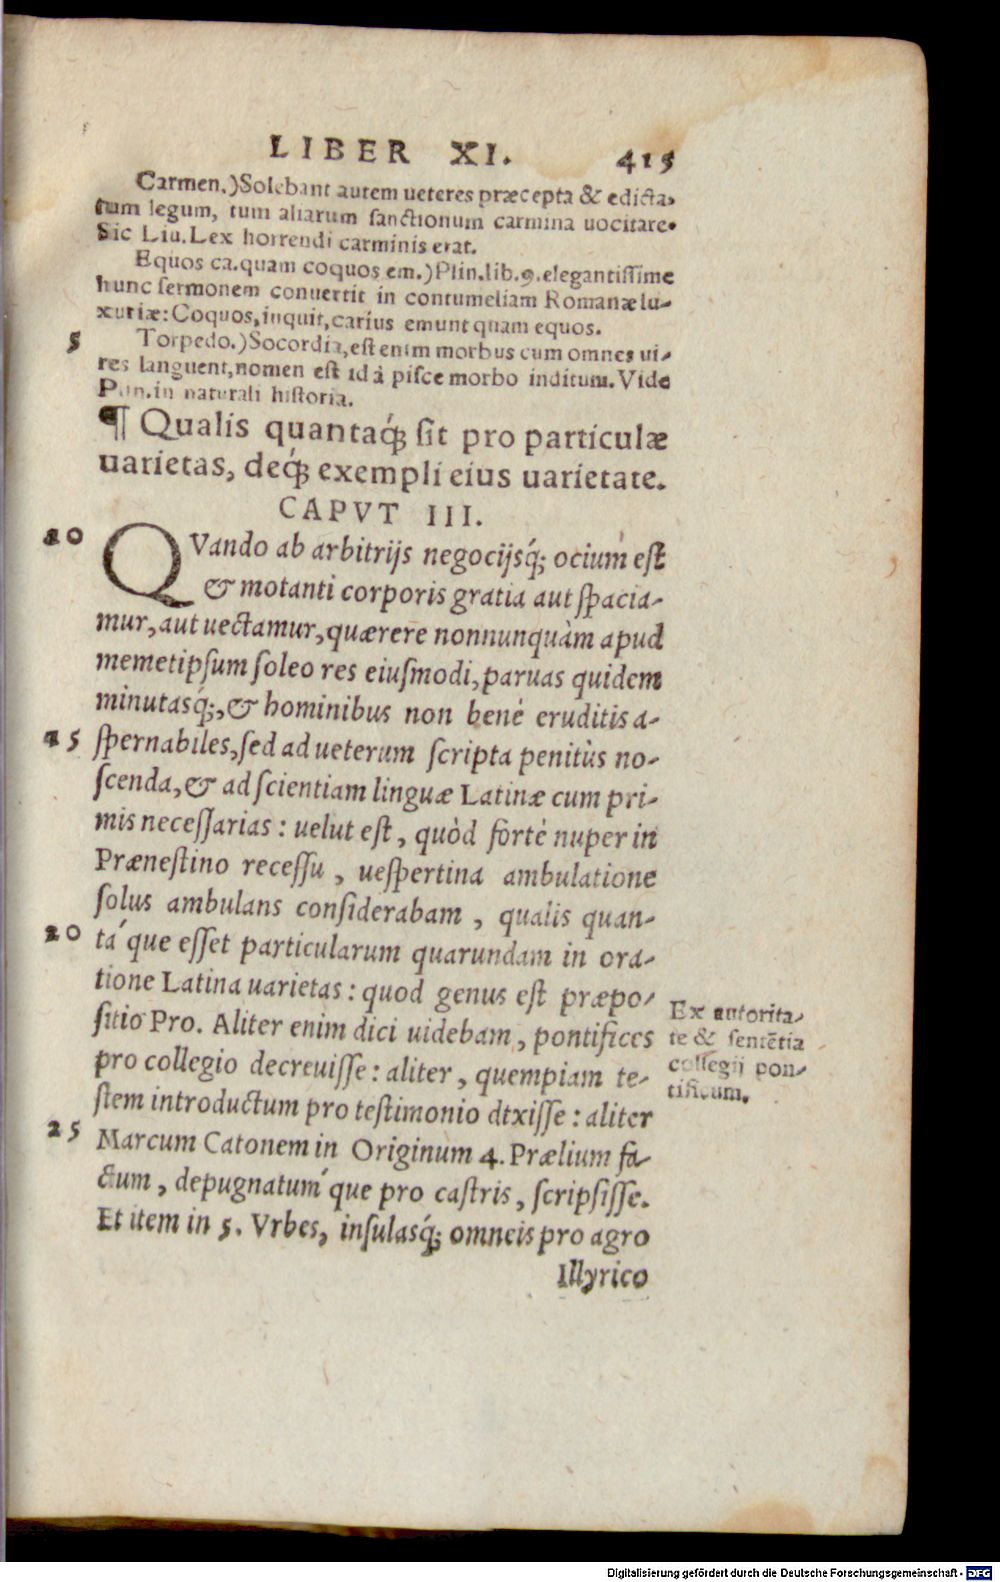 LIBER XI. 415
Carmen.) Solebant autem ueteres præcepta & edicta,
tum legum, tum aliarum sanctionum carmina uocitare.
Sic Liu. Lex horrendi carminis erat.
Equos ca. quam coquos em.) Plin. lib. 9. elegantissime
hunc sermonem conuertit in contumeliam Romanæ lu-
xuriæ: Coquos, inquit, carius emunt quam equos.
5 Torpedo.) Socordia, est enim morbus cum omnes ui-
res languent, nomen est id à pisce morbo inditum. Vide
Plin. in naturali historia.
¶ Qualis quantaq́; sit pro particulæ
uarietas, deq́; exempli eius uarietate.
CAPVT III.
10 QVando ab arbitrijs negocijsq́; ocium est
& motanti corporis gratia aut spacia-
mur, aut uectamur, quærere nonnunquàm apud
memetipsum soleo res eiusmodi, paruas quidem
minutasq́;, & hominibus non benè eruditis a-
15 spernabiles, sed ad ueterum scripta penitùs no-
scenda, & ad scientiam linguæ Latinæ cum pri-
mis necessarias: uelut est, quòd fortè nuper in
Prænestino recessu, uespertina ambulatione
solus ambulans considerabam, qualis quan-
20 tá que esset particularum quarundam in ora-
tione Latina uarietas: quod genus est præpo-
sitio Pro. Aliter enim dici uidebam, pontifices
pro collegio decreuisse: aliter, quempiam te-
stem introductum pro testimonio dtxisse: aliter
25 Marcum Catonem in Originum 4. Prælium fa-
ctum, depugnatuḿ que pro castris, scripsisse.
Et item in 5. Vrbes, insulasq́; omneis pro agro
Illyrico
Ex autorita-
te & sentētia
collegij pon-
tificum.
Digitalisierung gefördert durch die Deutsche Forschungsgemeinschaft - DFG